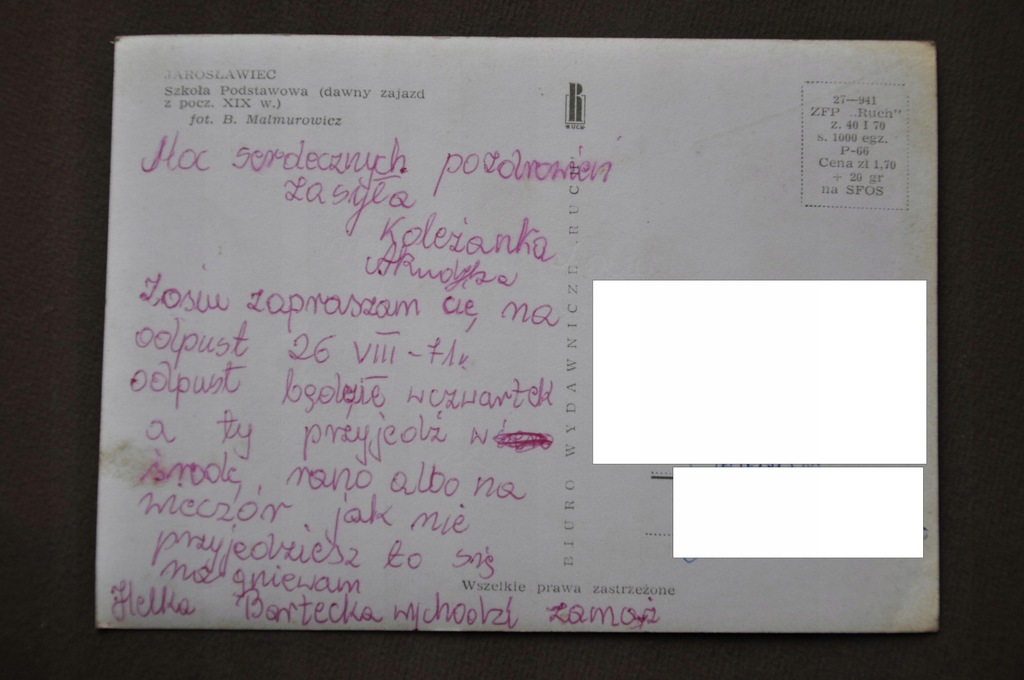 JAROSŁAWIEC
Szkoła Podstawowa (dawny zajazd
z pocz. XIX w.)
fot. B. Malmurowicz
Moc serdecznych pozdrowień
zasyła
Koleżanka
Zosiu zapraszam cię, na
odpust 26 VIII-71r.
odpust będzie wczwartek
a ty przyjedź w
środę, rano albo na
wieczór jak nie
przyjedziesz to się
na gniewam
Helka Bartecka wychodzi zamąż
RUCH
BIURO WYDAWNICZE RUCH
27—941
ZFP „Ruch"
z. 40 I 70
s. 1000 egz.
P-66
Cena zł 1,70
+ 20 gr
na SFOS
Wszelkie prawa zastrzeżone